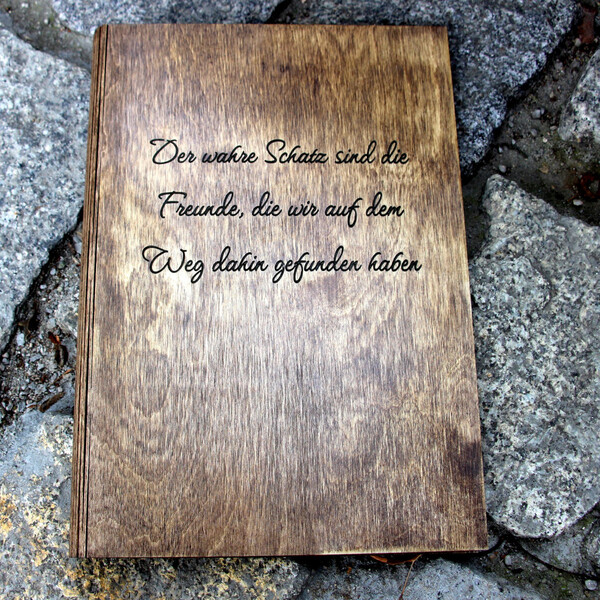 Der wahre Schatz sind die
Freunde, die wir auf dem
Weg dahin gefunden haben